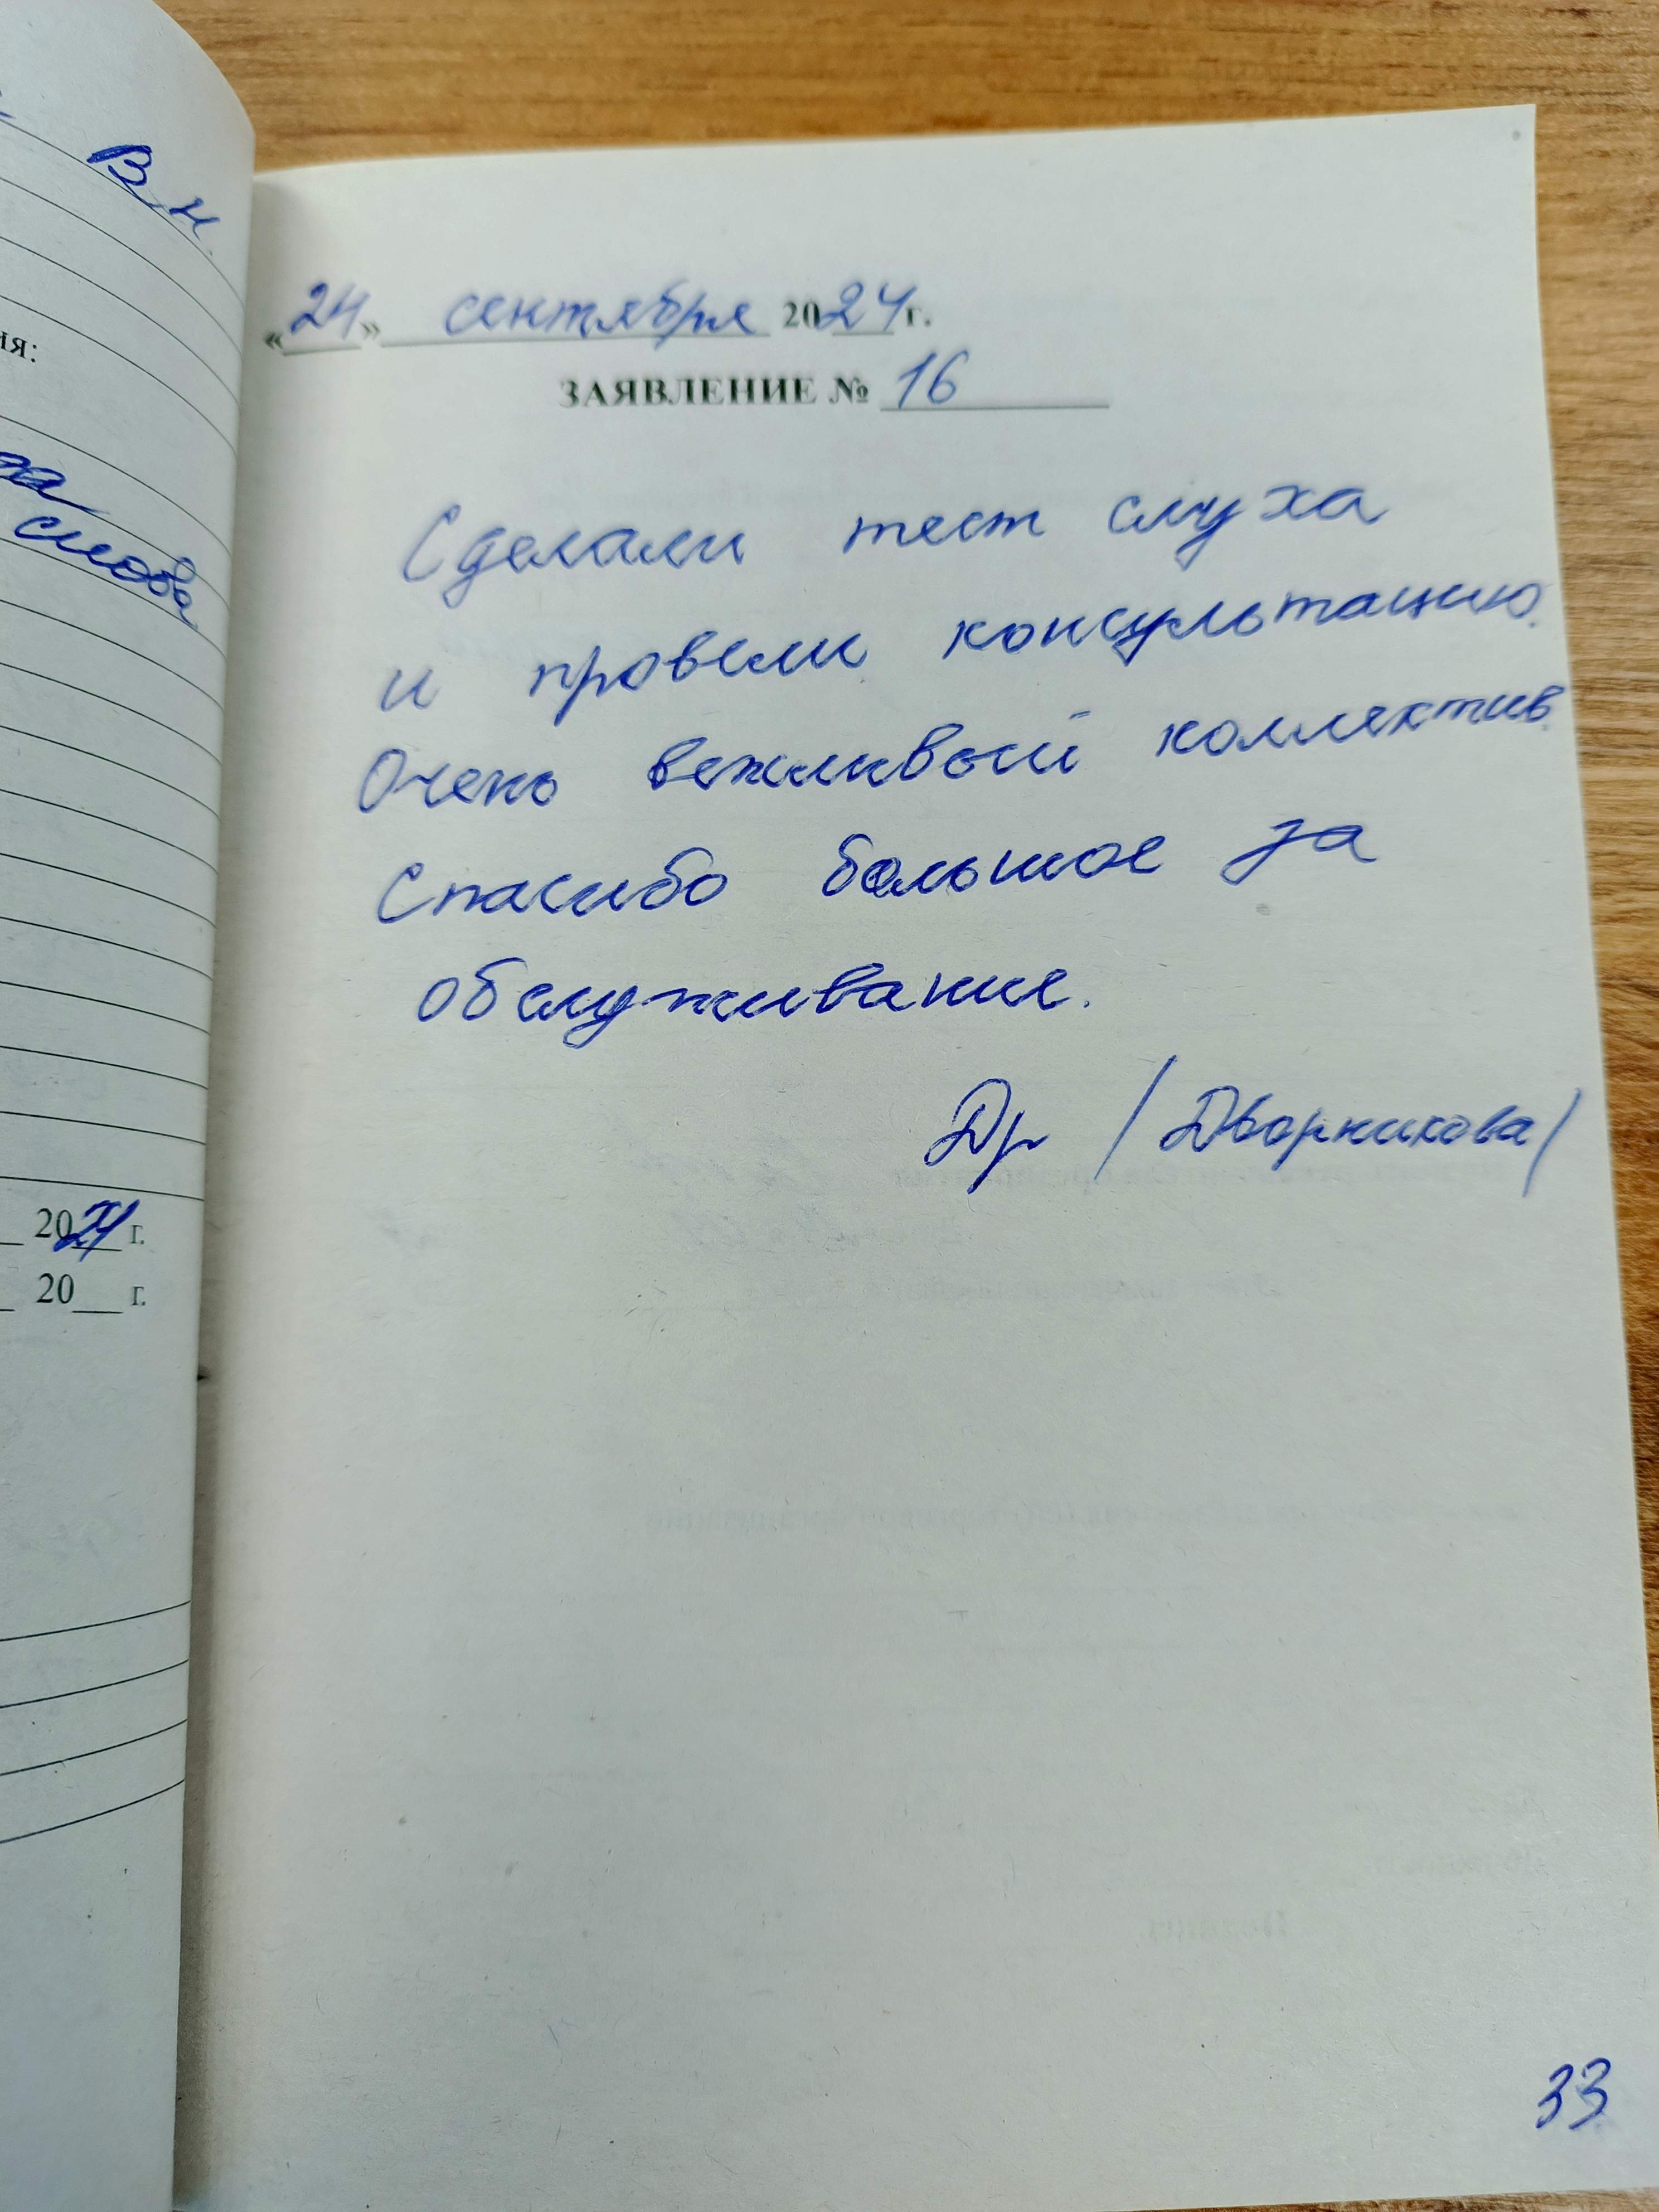 В Н.
ия:
снова
2024 г.
20___ г.
«24» сентября 2024 г.
ЗАЯВЛЕНИЕ № 16
Сделали тест слуха
и провели консультацию.
Очень вежливый коллектив.
Спасибо большое за
обслуживание.
Др /Дворникова/
33